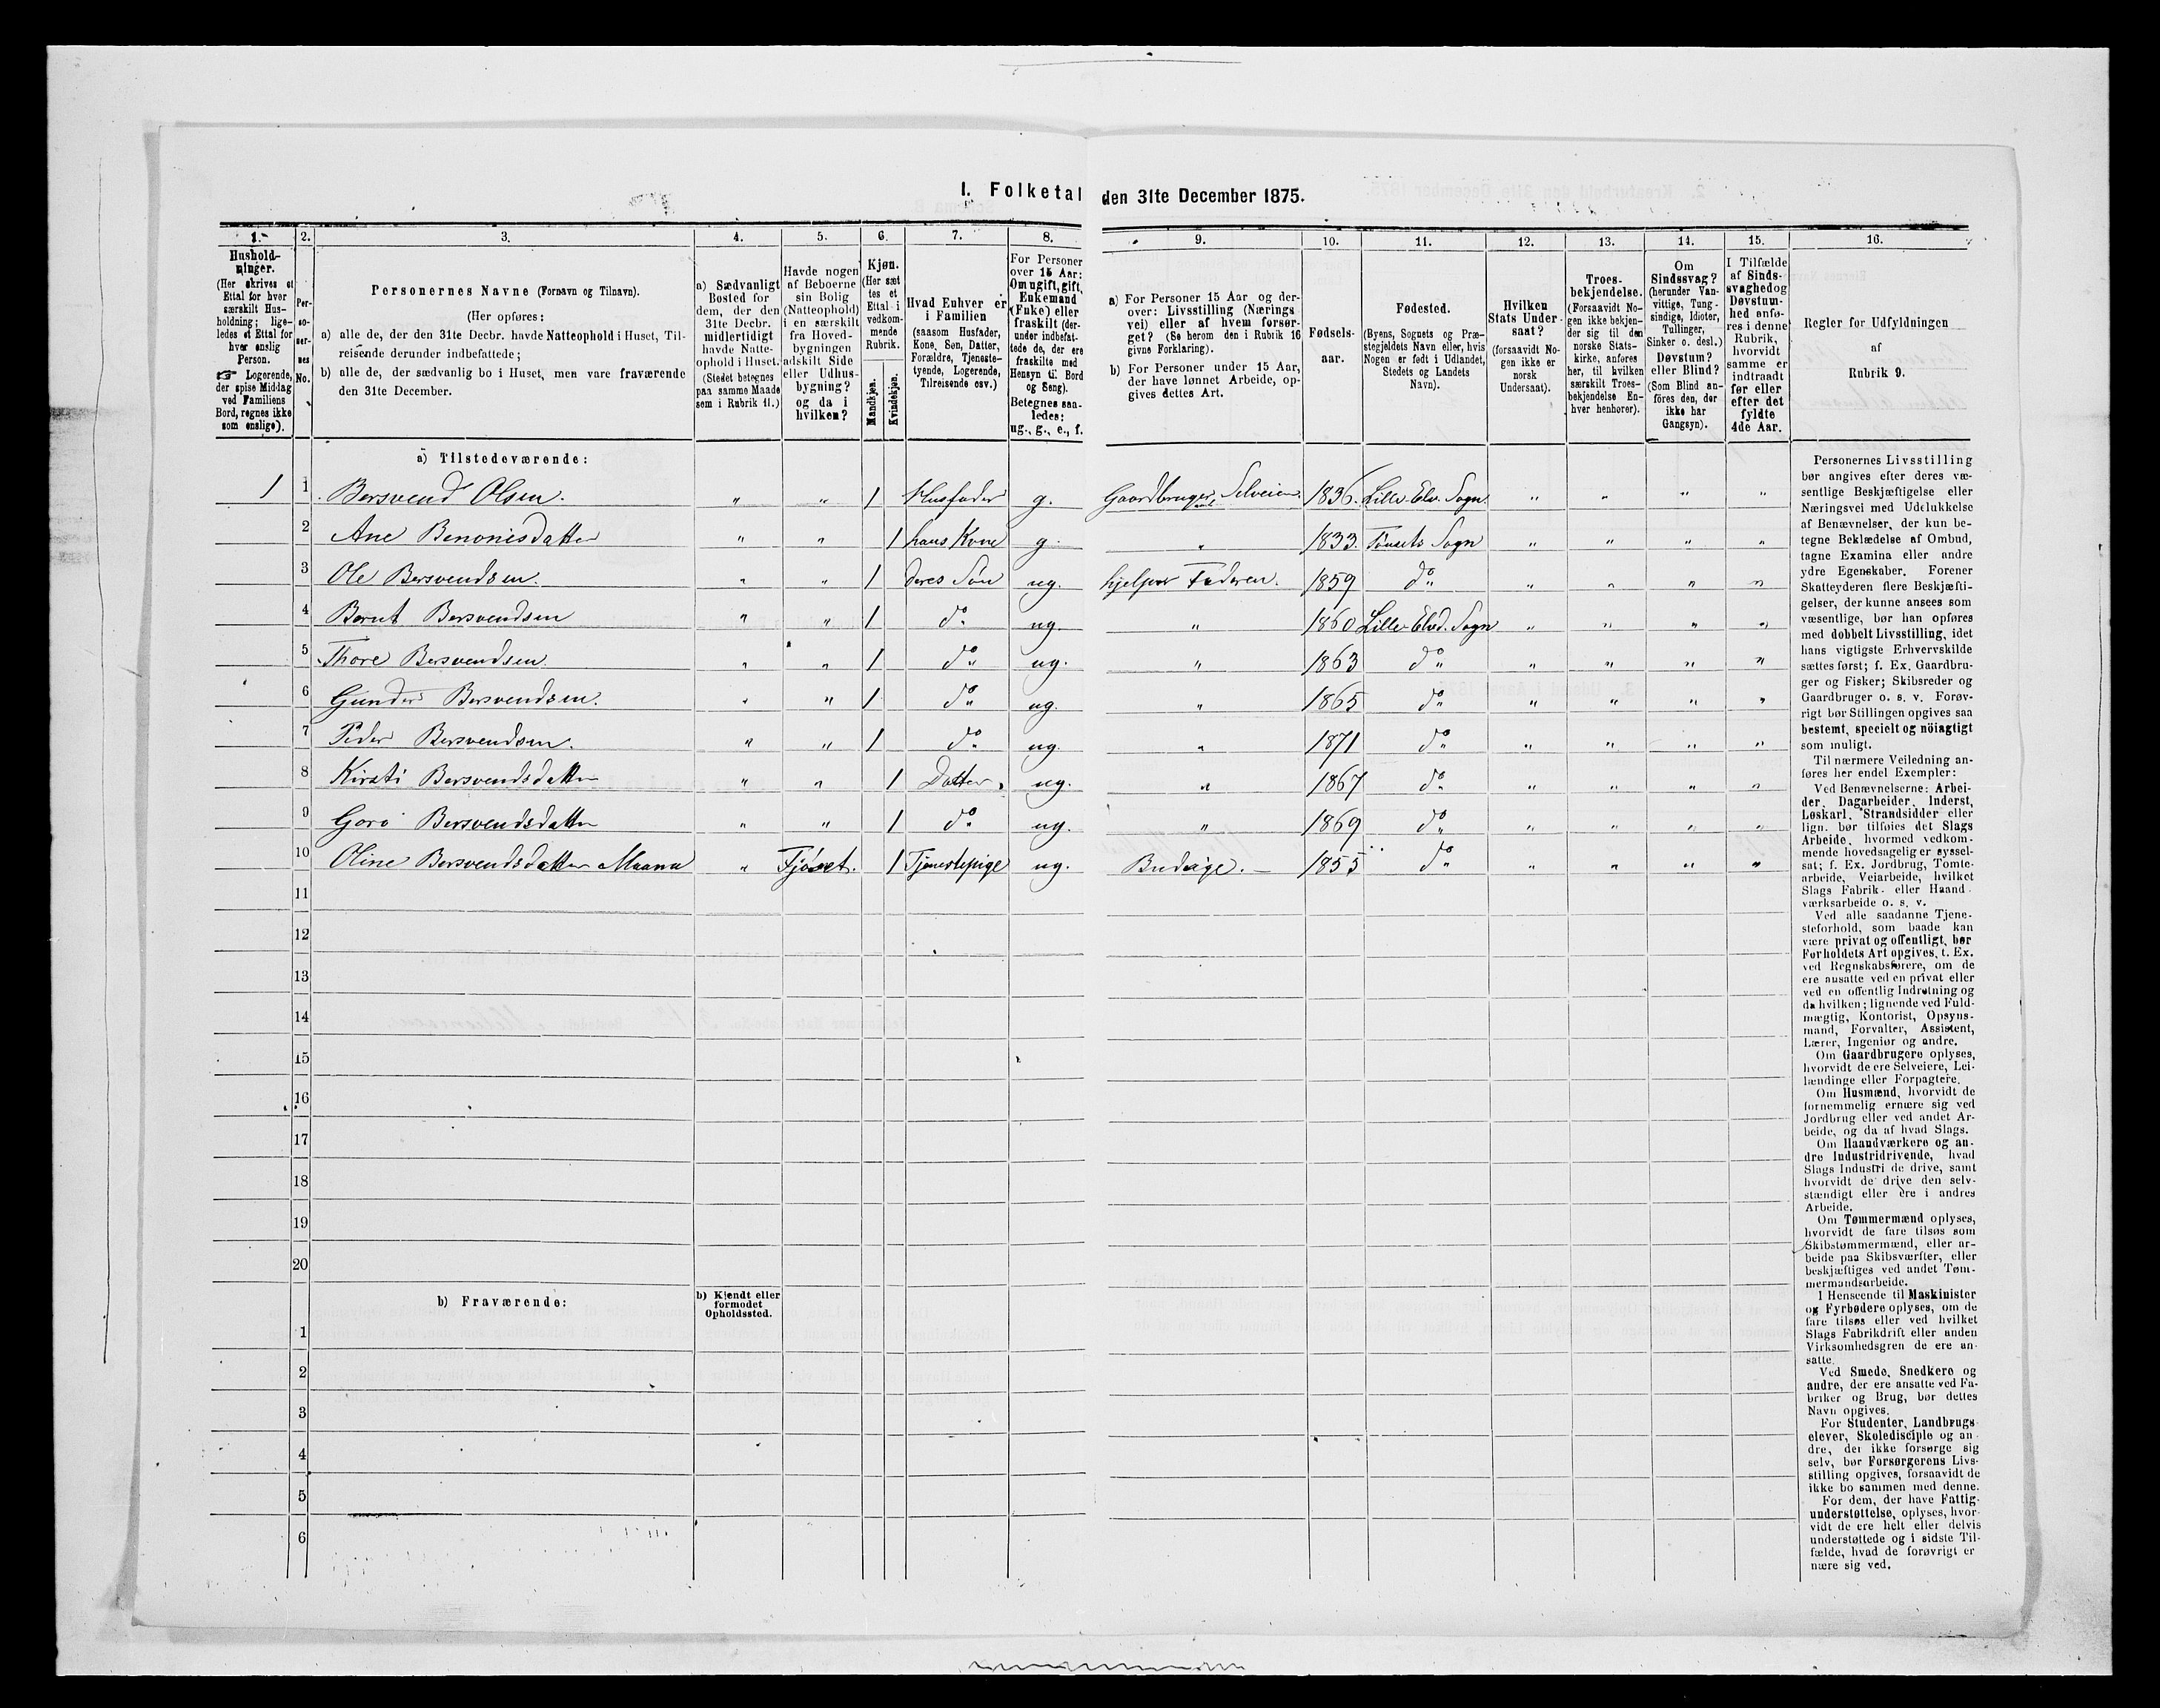 I. Folketal den 31te December 1875.
1. 2. 3. 4. 5. 6. 7. 8. 9. 10. 11. 12. 13. 14. 15. 16.
Hushold-
ninger.
(Her skrives et
Ettal for hver
særskilt Hus-
holdning; lige-
ledes et Ettal for
hver enslig
Person.
☞ Logerende,
der spise Middag
ved Familiens
Bord, regnes ikke
som enslige).
Per-
so-
ner-
nes
No.
Personernes Navne (Fornavn og Tilnavn).
(Her opføres:
a) alle de, der den 31te Decbr. havde Natteophold i Huset, Til-
reisende derunder indbefattede;
b) alle de, der sædvanlig bo i Huset, men vare fraværende
den 31te December.
a) Sædvanligt
Bosted for
dem, der den
31te Decbr.
midlertidigt
havde Natte-
ophold i Huset.
(Stedet betegnes
paa samme Maade
sem i Rubrik 11.)
Havde nogen
af Beboerne
sin Bolig
(Natteophold)
i en særskilt
fra Hoved-
bygningen
adskilt Side
eller Udhus-
bygning?
og da i
hvilken?
Kjøn.
(Her sæt
tes et
Ettal i
vedkom-
mende
Rubrik.
Mandkjøn.
Kvindekjøn.
Hvad Enhver er
i Familien
(saasom Husfader,
Kone, Søn, Datter,
Forældre, Tjeneste-
tyende, Logerende,
Tilreisende osv.)
For Personer
over 15 Aar:
Om ugift, gift,
Enkemand
(Enke) eller
fraskilt (der-
under indbefat-
tede de, der ere
fraskilte med
Hensyn til Bord
og Seng).
Betegnes saa-
ledes:
ug., g., e., f.
a) For Personer 15 Aar og der-
over: Livsstilling (Nærings
vei) eller af hvem forsør-
get? (Se herom den i Rubrik 16
givne Forklaring).
b) For Personer under 15 Aar,
der have lønnet Arbeide, op-
gives dettes Art.
Fødsels-
aar.
Fødested.
(Byens, Sognets og Præ-
stegjeldets Navn eller, hvis
Nogen er født i Udlandet,
Stedets og Landets
Navn).
Hvilken
Stats Under-
saat?
(forsaavidt No-
gen ikke er
norsk
Undersaat).
Troes-
bekjendelse.
(Forsaavidt No-
gen ikke bekjen-
der sig til den
norske Stats-
kirke, anføres
her, til hvilken
særskilt Troes-
bekjendelse En-
hver henhører).
Om
Sindssvag?
(herunder Van-
vittige, Tung-
sindige, Idioter,
Tullinger,
Sinker o. desl.)
Døvstum?
eller Blind?
(Som Blind an-
föres den, der
ikke har
Gangsyn).
I Tilfælde
af Sinds-
svaghed og
Døvstum-
hed anfø-
res i denne
Rubrik,
hvorvidt
samme er
indtraadt
før eller
efter det
fyldte
4de Aar.
Regler for Udfyldningen
af
Rubrik 9.
a) Tilstedeværende:
1 1 Bersvend Olsen. " " 1 Husfader g. Gaardbruger, Selveier. 1836. Lille Elv. Sogn " " " "
2 Ane Benonisdatter " " 1 hans Kone g. " 1833. Tönsets Sogn " " " "
3 Ole Bersvendsen. " " 1 deres Sön ug. hjelper Faderen. 1859 do " " " "
4 Bernt Bersvendsen " " 1 do ug. " 1860 Lille Elvd. Sogn " " " "
5 Thore Bersvendsen. " " 1 do ug. " 1863 do " " " "
6 Gunder Bersvendsen. " " 1 do ug. " 1865 do " " " "
7 Peder Bersvendsen. " " 1 do ug. " 1871 do " " " "
8 Kirsti Bersvendsdatter " " 1 Datter. ug. " 1867 do " " " "
9 Goro Bersvendsdatter " " 1 do ug. " 1869 do " " " "
10 Oline Bersvendsdatter Maana " Fjöset. 1 Tjenestepige ug. Budeige. 1855 do " " " "
11
12
13
14
15
16
17
18
19
20
b) Fraværende:
b) Kjendt eller
formodet
Opholdssted.
1
2
3
4
5
6
Personernes Livsstilling
bør angives efter deres væ-
sentlige Beskjæftigelse eller
Næringsvei med Udelukkelse
af Benævnelser, der kun be-
tegne Beklædelse af Ombud,
tagne Examina eller andre
ydre Egenskaber. Forener
Skatteyderen flere Beskjæfti-
gelser, der kunne ansees som
væsentlige, bør han opføres
med dobbelt Livsstilling, idet
hans vigtigste Erhvervskilde
sættes først; f. Ex. Gaardbru-
ger og Fisker; Skibsreder og
Gaardbruger o. s. v. Forøv-
rigt bør Stillingen opgives saa
bestemt, specielt og nöiagtigt
som muligt.
Til nærmere Veiledning an-
føres her endel Exempler:
Ved Benævnelserne: Arbei-
der, Dagarbeider, Inderst,
Løskarl, Strandsidder eller
lign. bør tilføies det Slags
Arbeide, hvormed vedkom-
mende hovedsagelig er syssel-
sat; f. Ex. Jordbrug, Tomte-
arbeide, Veiarbeide, hvilket
Slags Fabrik- eller Haand-
værksarbeide o. s. v.
Ved alle saadanne Tjene-
steforhold, som baade kan
være privat og offentligt, bør
Forholdets Art opgives, t. Ex.
ved Regnskabsførere, om de
ere ansatte ved en privat eller
ved en offentlig Indretning og
da hvilken; lignende ved Fuld-
mægtig, Kontorist, Opsyns-
mand, Forvalter, Assistent,
Lærer, Ingeniør og andre.
Om Gaardbrugere oplyses,
hvorvidt de ere Selveiere, Lei-
lændinge eller Forpagtere.
Om Husmænd, hvorvidt de
fornemmelig ernære sig ved
Jordbrug eller ved andet Ar-
beide, og da af hvad Slags.
Om Haandværkere og an-
dre Industridrivende, hvad
Slags Industri de drive, samt
hvorvidt de drive den selv-
stændigt eller ere i andres
Arbeide.
Om Tømmermænd oplyses,
hvorvidt de fare tilsøs som
Skibstømmermænd, eller ar-
beide paa Skibsværfter, eller
beskjæftiges ved andet Tøm-
mermandsarbeide.
I Henseende til Maskinister
og Fyrbødere oplyses, om de
fare tilsøs eller ved hvilket
Slags Fabrikdrift eller anden
Virksomhedsgren de ere an-
satte.
Ved Smede, Snedkere og
andre, der ere ansatte ved Fa-
briker og Brug, bør dettes
Navn opgives.
For Studenter, Landbrugs-
elever, Skoledisciple og an-
dre, der ikke forsørge sig
selv, bør Forsørgerens Livs-
stilling opgives, forsaavidt de
ikke bo sammen med denne.
For dem, der have Fattig-
understøttelse, oplyses, hvor-
vidt de ere helt eller delvis
understøttede og i sidste Til-
fælde, hvad de forøvrigt er-
nære sig ved.